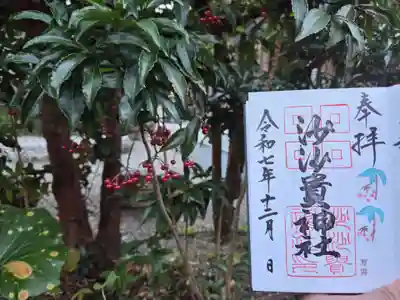 奉拝
沙沙貴神社
令和七年十二月 日